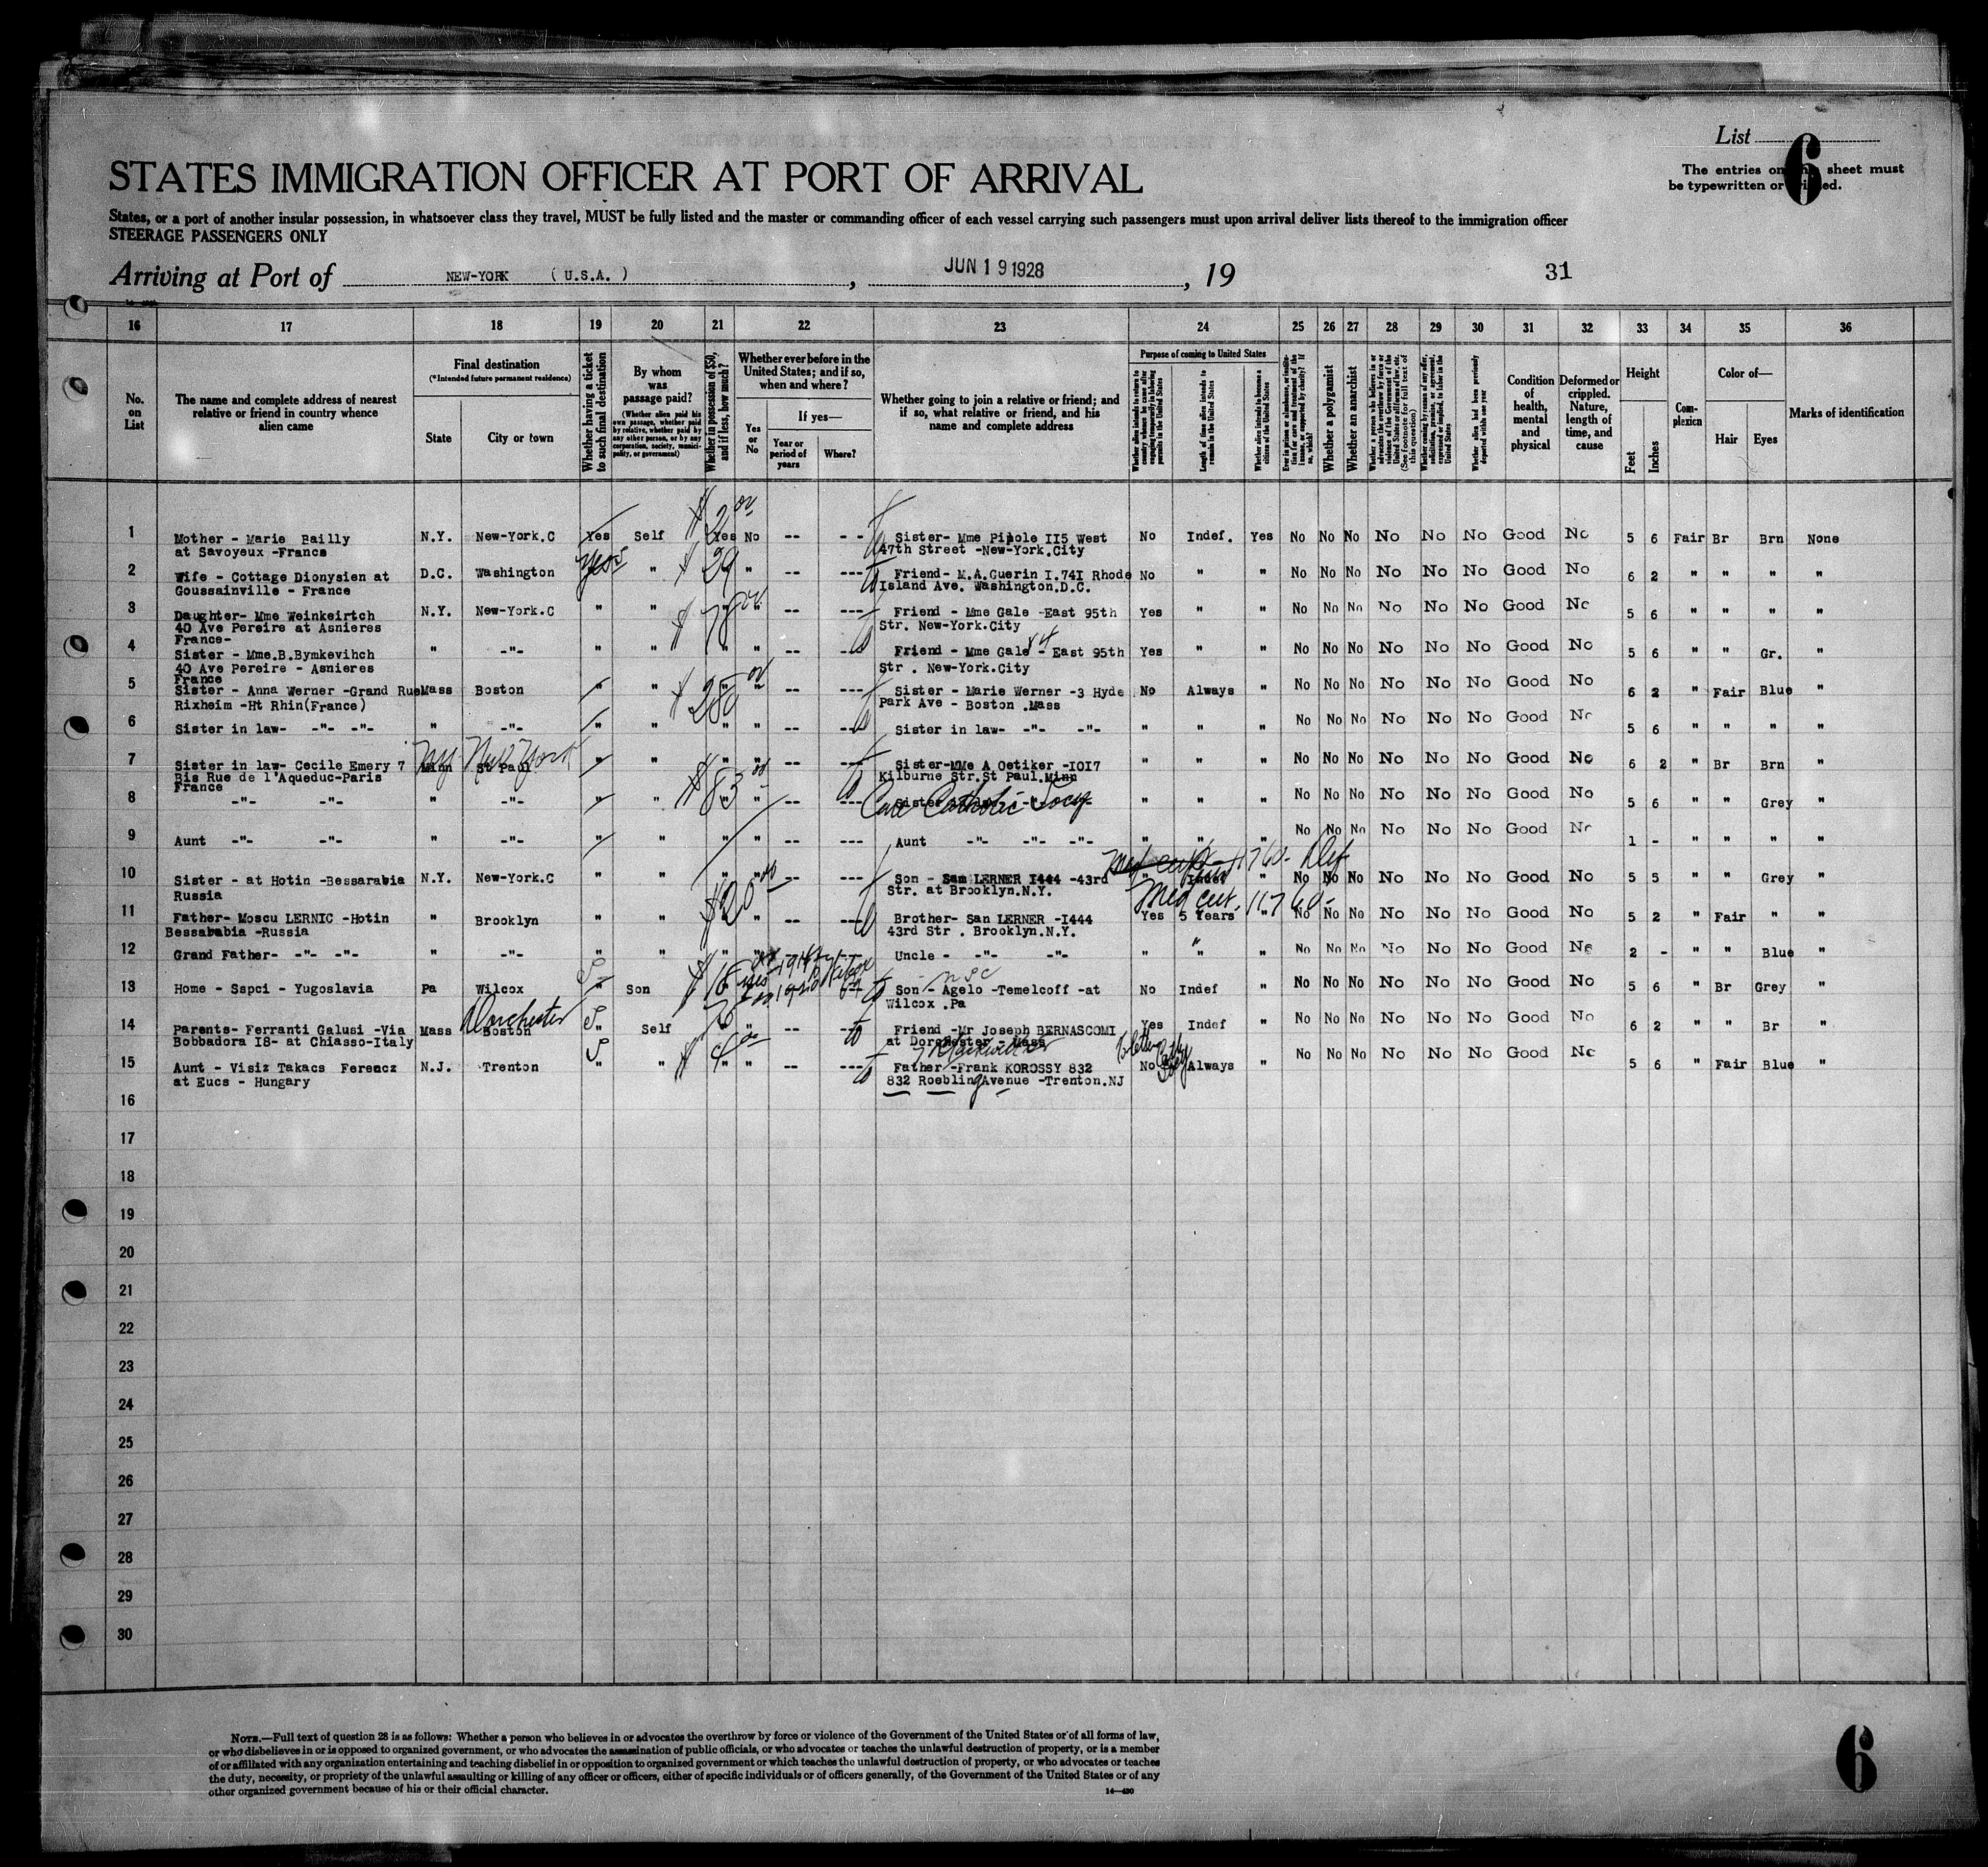 List 6
The entries on this sheet must
be typewritten or printed.
STATES IMMIGRATION OFFICER AT PORT OF ARRIVAL
States, or a port of another insular possession, in whatsoever class they travel, MUST be fully listed and the master or commanding officer of each vessel carrying such passengers must upon arrival deliver lists thereof to the immigration officer
STEERAGE PASSENGERS ONLY
Arriving at Port of NEW-YORK ( U.S.A. ) , JUN 19 1928 , 19 31
16 17 18 19 20 21 22 23 24 25 26 27 28 29 30 31 32 33 34 35 36
No. on List
The name and complete address of nearest relative or friend in country whence alien came
Final destination
(*Intended future permanent residence)
State City or town
Whether having a ticket to such final destination
By whom was passage paid?
(Whether alien paid his own passage, whether paid by relative, whether paid by any other person, or by any corporation, society, municipality, or government)
Whether in possession of $50, and if less, how much?
Whether ever before in the United States; and if so, when and where?
Yes or No
If yes—
Year or period of years Where?
Whether going to join a relative or friend; and if so, what relative or friend, and his name and complete address
Purpose of coming to United States
Length of time alien intends to remain in the United States
Whether alien intends to become a citizen of the United States
Whether a polygamist
Whether an anarchist
Condition of health, mental and physical
Deformed or crippled. Nature, length of time, and cause
Height
Feet Inches
Complexion
Color of—
Hair Eyes
Marks of identification
1 Mother - Marie Bailly N.Y. New-York.C Yes Self $ 2 00 Yes No -- -- Sister- Mme Pinole II5 West No Indef. Yes No No No No No No Good No 5 6 Fair Br Brn None
at Savoyeux -France 47th Street -New-York.City
2 Wife - Cottage Dionysien at D.C. Washington Yes " $ 29 " -- --- Friend- M.A.Guerin I.74I Rhode No " " No No No No No No Good No 6 2 " " " "
Goussainville - France Island Ave. Washington.D.C.
3 Daughter- Mme Weinkeirtch N.Y. New-York.C " " $ 78 00 " -- --- Friend - Mme Gale -East 95th Yes " " No No No No No No Good No 5 6 " " " "
40 Ave Pereire at Asnieres Str. New-York.City
France-
4 Sister - Mme.B.Bymkevihch " -"- " " " " -- --- Friend - Mme Gale - East 95th Yes " " No No No No No No Good No 5 6 " " Gr. "
40 Ave Pereire - Asnieres Str . New-York.City
France
5 Sister - Anna Werner -Grand Rue Mass Boston " " $ 250 00 " " -- --- Sister - Marie Werner -3 Hyde No Always " No No No No No No Good No 6 2 " Fair Blue "
Rixheim -Ht Rhin(France) Park Ave - Boston .Mass
6 Sister in law- -"- -"- " -"- " " " " -- --- Sister in law- -"- -"- " " " No No No No No No Good No 5 6 " " " "
7 Sister in law- Cecile Emery 7 Minn St Paul NY New York " " " " -- --- Sister-MMe A Oetiker -IOI7 " " " No No No No No No Good No 6 2 " Br Brn "
Bis Rue de l'Aqueduc-Paris Kilburne Str.St Paul.Minn
France
8 -"- -"- " -"- " " $ 83 00 " " -- --- Care Catholic Socy " " " No No No No No No Good No 5 6 " " Grey "
9 Aunt -"- -"- " -"- " " " " -- --- Aunt -"- -"- -"- " " " No No No No No No Good No 1 - " " " "
10 Sister - at Hotin -Bessarabia N.Y. New-York.C " " " " -- --- Son - Sam LERNER I444 -43rd " Indef " No No No No No No Good No 5 5 " " Grey "
Russia Str. at Brooklyn.N.Y.
Med cert. 11760-
11 Father- Moscu LERNIC -Hotin " Brooklyn " " $20 00 " " -- --- Brother- San LERNER -I444 Yes 5 Years " No No No No No No Good No 5 2 " Fair " "
Bessarabia -Russia 43rd Str . Brooklyn.N.Y.
12 Grand Father- -"- -"- " -"- " " " " Uncle - -"- -"- " " " No No No No No No Good No 2 - " " Blue "
13 Home - Sspci - Yugoslavia Pa Wilcox " Son $ 15 yes Son - Agelo -Temelcoff -at No Indef " No No No No No No Good No 5 6 " Br Grey "
Wilcox .Pa
14 Parents- Ferranti Galusi -Via Mass Boston Dorchester " Self " -- -- Friend -Mr Joseph BERNASCOMI Yes Indef " No No No No No No Good No 6 2 " " Br "
Bobbadora I8- at Chiasso-Italy at Dorchester - Mass
15 Aunt - Visiz Takacs Ferencz N.J. Trenton " " $ 4 00 " " -- --- Father -Frank KOROSSY 832 No Always " No No No No No No Good No 5 6 " Fair Blue "
at Eucs - Hungary 832 Roebling Avenue -Trenton.NJ
16
17
18
19
20
21
22
23
24
25
26
27
28
29
30
NOTE.—Full text of question 28 is as follows: Whether a person who believes in or advocates the overthrow by force or violence of the Government of the United States or of all forms of law,
or who disbelieves in or is opposed to organized government, or who advocates the assassination of public officials, or who advocates or teaches the unlawful destruction of property, or is a member
of or affiliated with any organization entertaining and teaching disbelief in or opposition to organized government or which teaches the unlawful destruction of property, or who advocates or teaches
the duty, necessity, or propriety of the unlawful assaulting or killing of any officer or officers, either of specific individuals or of officers generally, of the Government of the United States or of any
other organized government because of his or their official character.
14—430
6